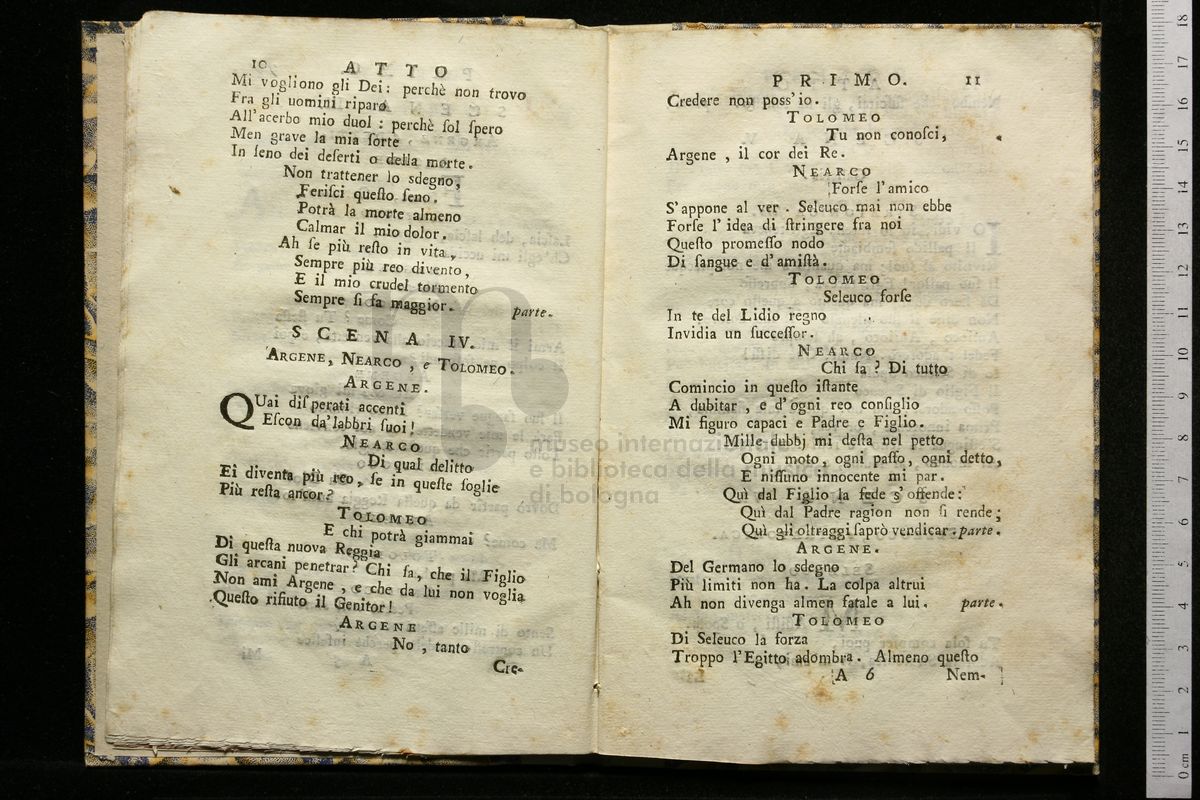 10 ATTO
Mi vogliono gli Dei: perchè non trovo
Fra gli uomini riparo
All'acerbo mio duol : perchè ſol ſpero
Men grave la mia ſorte
In ſeno dei deſerti o della morte.
Non trattener lo sdegno,
Feriſci queſto ſeno.
Potrà la morte almeno
Calmar il mio dolor.
Ah ſe più reſto in vita,
Sempre più reo divento,
E il mio crudel tormento
Sempre ſi fa maggior. parte.
SCENA IV.
ARGENE, NEARCO, e TOLOMEO.
ARGENE.
QUai diſperati accenti
Eſcon da'labbri ſuoi!
NEARCO
Di qual delitto
Ei diventa più reo, ſe in queſte ſoglie
Più reſta ancor?
TOLOMEO
E chi potrà giammai
Di queſta nuova Reggia
Gli arcani penetrar? Chi ſa, che il Figlio
Non ami Argene, e che da lui non voglia
Queſto rifiuto il Genitor!
ARGENE
No, tanto
Cre-
PRIMO. 11
Credere non poss'io.
TOLOMEO
Tu non conoſci,
Argene, il cor dei Re.
NEARCO
Forſe l'amico
S'appone al ver. Seleuco mai non ebbe
Forſe l'idea di ſtringere fra noi
Queſto promeſſo nodo
Di ſangue e d'amiſtà.
TOLOMEO
Seleuco forſe
In te del Lidio regno
Invidia un ſucceſſor.
NEARCO
Chi ſa? Di tutto
Comincio in queſto iſtante
A dubitar, e d'ogni reo conſiglio
Mi figuro capaci e Padre e Figlio.
Mille dubbj mi deſta nel petto
Ogni moto, ogni paſſo, ogni detto,
E niſſuno innocente mi par.
Quì dal Figlio la fede s'offende:
Quì dal Padre ragion non ſi rende;
Quì gli oltraggi ſaprò vendicar. parte.
ARGENE.
Del Germano lo sdegno
Più limiti non ha. La colpa altrui
Ah non divenga almen fatale a lui. parte.
TOLOMEO
Di Seleuco la forza
Troppo l'Egitto adombra. Almeno queſto
A 6 Nem-
museo internazionale
e biblioteca della musica
di bologna
0 cm 1 2 3 4 5 6 7 8 9 10 11 12 13 14 15 16 17 18